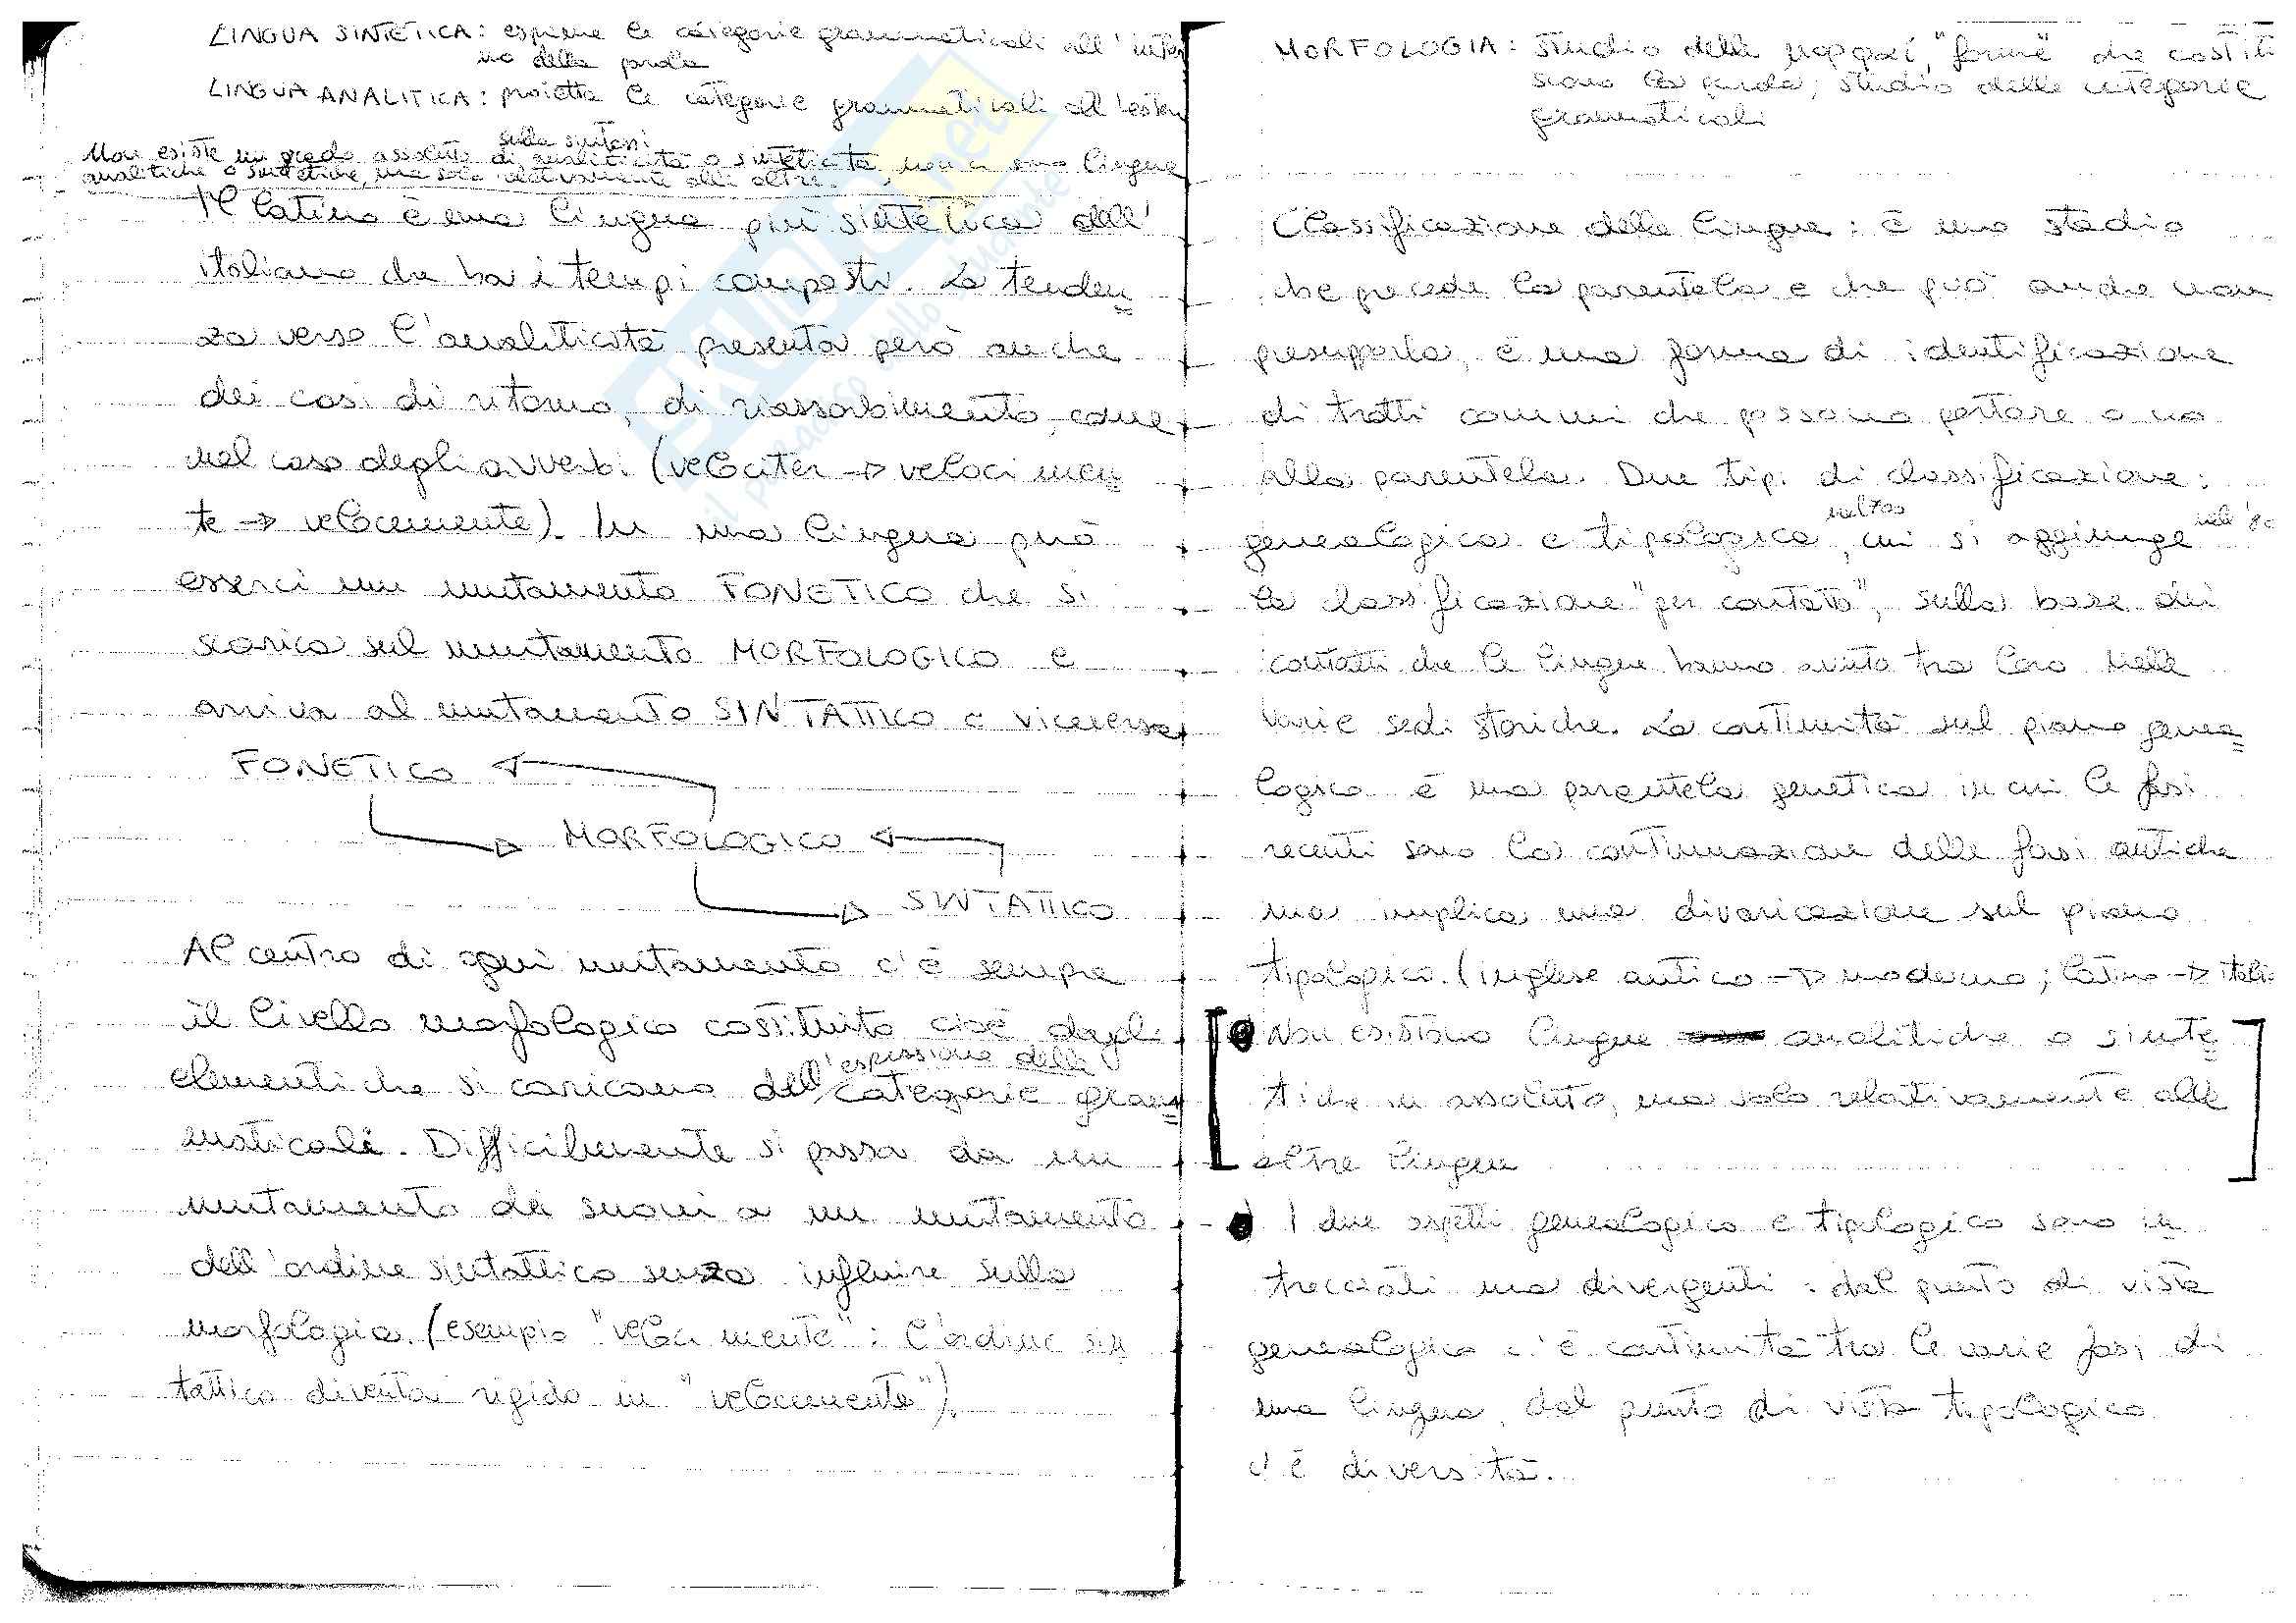 LINGUA SINTETICA: esprime le categorie grammaticali all'inter
no della parola
LINGUA ANALITICA: proietta le categorie grammaticali all'ester
sulla sintassi
Non esiste un grado assoluto di analiticità o sinteticità, non ci sono lingue
analitiche o sintetiche, ma solo relativamente alle altre.
Il latino è una lingua più sintetica dell'
italiano che ha i tempi composti. La tenden
za verso l'analiticità presenta però anche
dei casi di ritorno, di riassorbimento, come
nel caso degli avverbi (velociter → veloci men
te → velocemente). In una lingua può
esserci un mutamento FONETICO che si
scarica sul mutamento MORFOLOGICO e
arriva al mutamento SINTATTICO e viceversa
FONETICO
MORFOLOGICO
SINTATTICO
Al centro di ogni mutamento c'è sempre
il livello morfologico costituito cioè dagli
elementi che si caricano dell'espressione delle categorie gram
maticali. Difficilmente si passa da un
mutamento dei suoni a un mutamento
dell'ordine sintattico senza influire sulla
morfologia. (esempio "veloci mente": l'ordine sin
tattico diventa rigido in "velocemente").
MORFOLOGIA: studio delle "forme" che costitui
scono la parola; studio delle categorie
grammaticali
Classificazione delle lingue: è uno stadio
che precede la parentela e che può anche non
presupporla, è una forma di identificazione
di tratti comuni che possono portare o no
alla parentela. Due tipi di classificazione:
genealogica e tipologica, cui si aggiunge
la classificazione "per contatto", sulla base dei
contatti che le lingue hanno avuto tra loro nelle
varie sedi storiche. La continuità sul piano genea
logico è una parentela genetica in cui le fasi
recenti sono la continuazione delle fasi antiche
ma implica una divaricazione sul piano
tipologico. (inglese antico → moderno; latino → itali
Non esistono lingue analitiche o sinte
tiche in assoluto, ma solo relativamente alle
altre lingue
I due aspetti genealogico e tipologico sono in
trecciati ma divergenti: dal punto di vista
genealogico c'è continuità tra le varie fasi di
una lingua, dal punto di vista tipologico
c'è diversità.